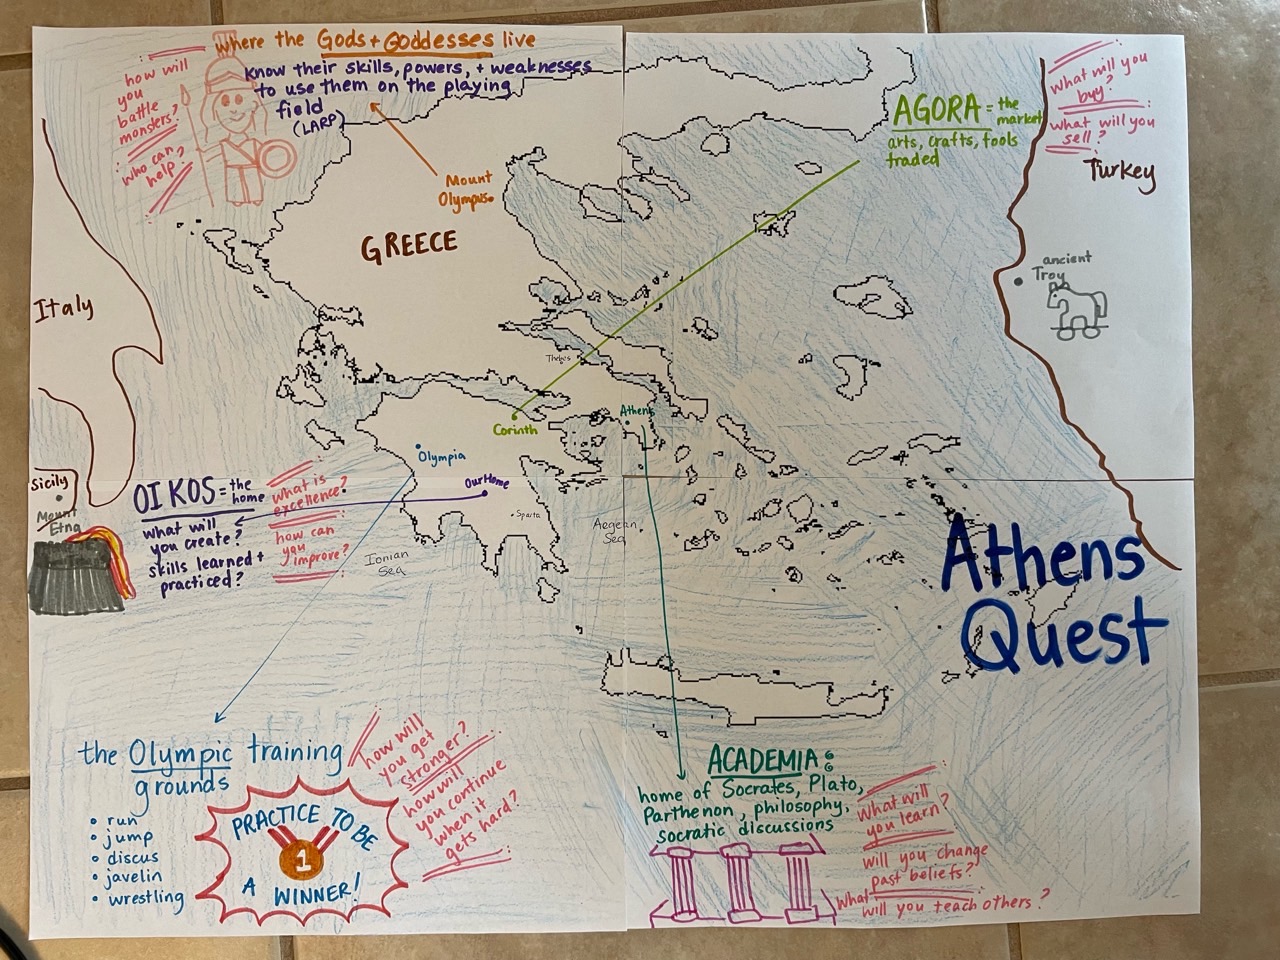 where the Gods + Goddesses live
know their skills, powers, + weaknesses
to use them on the playing
field
(LARP)
how will
you
battle
monsters?
who can
help?
Mount
Olympus
GREECE
AGORA = the
market
arts, crafts, fools
traded
what will you
buy?
what will you
sell?
Turkey
ancient
Troy
Italy
Thebes
Athens
Corinth
Olympia
Our Home
Sparta
Aegean
Sea
Ionian
Sea
Sicily
Mount
Etna
OIKOS = the
home
what will
you create?
skills learned +
practiced?
what is
excellence?
how can
you
improve?
Athens
Quest
the Olympic training
grounds
• run
• jump
• discus
• javelin
• wrestling
PRACTICE TO BE
1
A WINNER!
how will
you get
stronger?
how will
you continue
when it
gets hard?
ACADEMIA:
home of Socrates, Plato,
Parthenon, philosophy,
socratic discussions
What will
you learn?
will you change
past beliefs?
What
will you teach others?